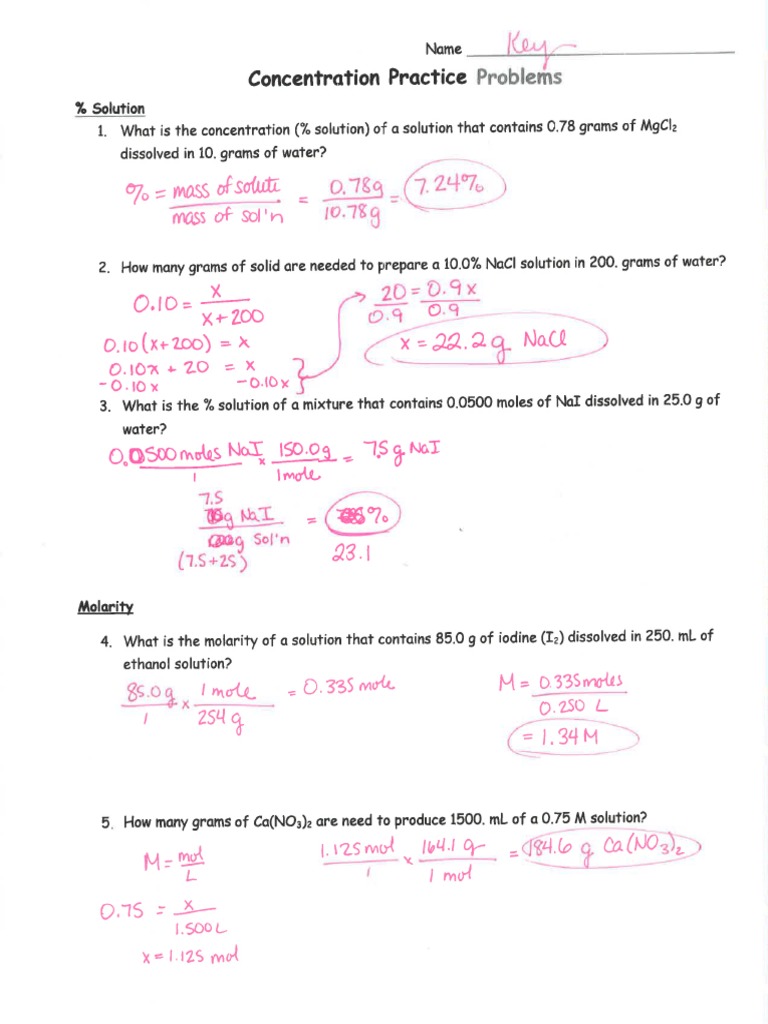 Name Key
Concentration Practice Problems
% Solution
1. What is the concentration (% solution) of a solution that contains 0.78 grams of MgCl₂
dissolved in 10. grams of water?
% = mass of solute / mass of sol'n = 0.78g / 10.78g = 7.24%
2. How many grams of solid are needed to prepare a 10.0% NaCl solution in 200. grams of water?
0.10 = x / x+200
0.10(x+200) = x
0.10x + 20 = x
-0.10x -0.10x
20 = 0.9x
0.9 0.9
x = 22.2g NaCl
3. What is the % solution of a mixture that contains 0.0500 moles of NaI dissolved in 25.0 g of
water?
0.0500 moles NaI / 1 x 150.0g / 1mole = 7.5g NaI
7.5
g NaI / g Sol'n = %
(7.5+25) 23.1
Molarity
4. What is the molarity of a solution that contains 85.0 g of iodine (I₂) dissolved in 250. mL of
ethanol solution?
85.0g / 1 x 1 mole / 254 g = 0.335 mole
M = 0.335moles / 0.250 L
= 1.34 M
5. How many grams of Ca(NO₃)₂ are need to produce 1500. mL of a 0.75 M solution?
M = mol / L
0.75 = x / 1.500L
x = 1.125 mol
1.125 mol / 1 x 164.1 g / 1 mol = 184.6 g Ca(NO₃)₂